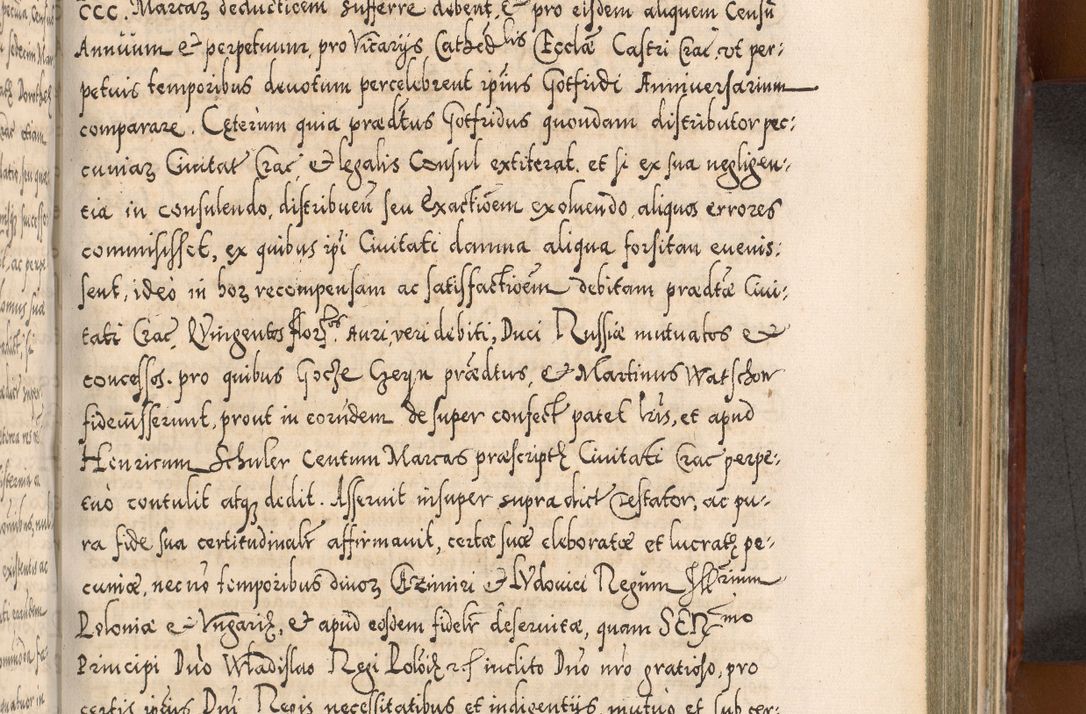 CCC. Marcaꝝ deducticem sufferre debent, & pro eisdem aliquem Censũ
Annuum & perpetuum pro Vicarijs Cathedlis Ecclæ Castri Crac, vt per:
petuis temporibus deuotum percelebrent ipius Gotfridi Anniuersarium
comparare. Cęterum quia prædtus Gotfridus quondam distributor pec:
cuniaꝝ Ciuitat Crac, & legalis Consul extiterat. et si ex sua negligen:
tia in consulendo, distribueñ seu Exactioem exoluendo, aliquos errores
commisisset, ex quibus ipi Ciuitati damna aliqua forsitan euenis:
sent, ideò in hoꝝ recompensam ac satisfactioem debitam prædtæ Ciui:
tati Crac, Quingentos Flor. Auri, veri debiti, Duci Russiæ mutuatos &
concessos. pro quibus Gocze Czeyn prædtus, & Martinus Watschow
fideiusserunt, prout in eorundem de super confect patet lris, et apud
Henricum Schuler Centum Marcas præscriptę Ciuitati Crac perpe:
tuò contulit atqꝫ dedit. Asseruit insuper supradict Testator, ac pu:
ra fide sua certitudinalr affirmauit, certæ suæ elaboratæ et lucratę pe:
cuniæ, necnò temporibus diuoꝝ Cazimiri & Ludouici Regum Illrium
Poloniæ & Vngarię, & apud eosdem fidelr deseruitæ, quam SERmo
Principi Dno Wladislao Regi Poloię etc inclito Dno nro gratioso, pro
certis ipsius Dni Regis necessitatibus et indigentijs mutuò et sub cer: